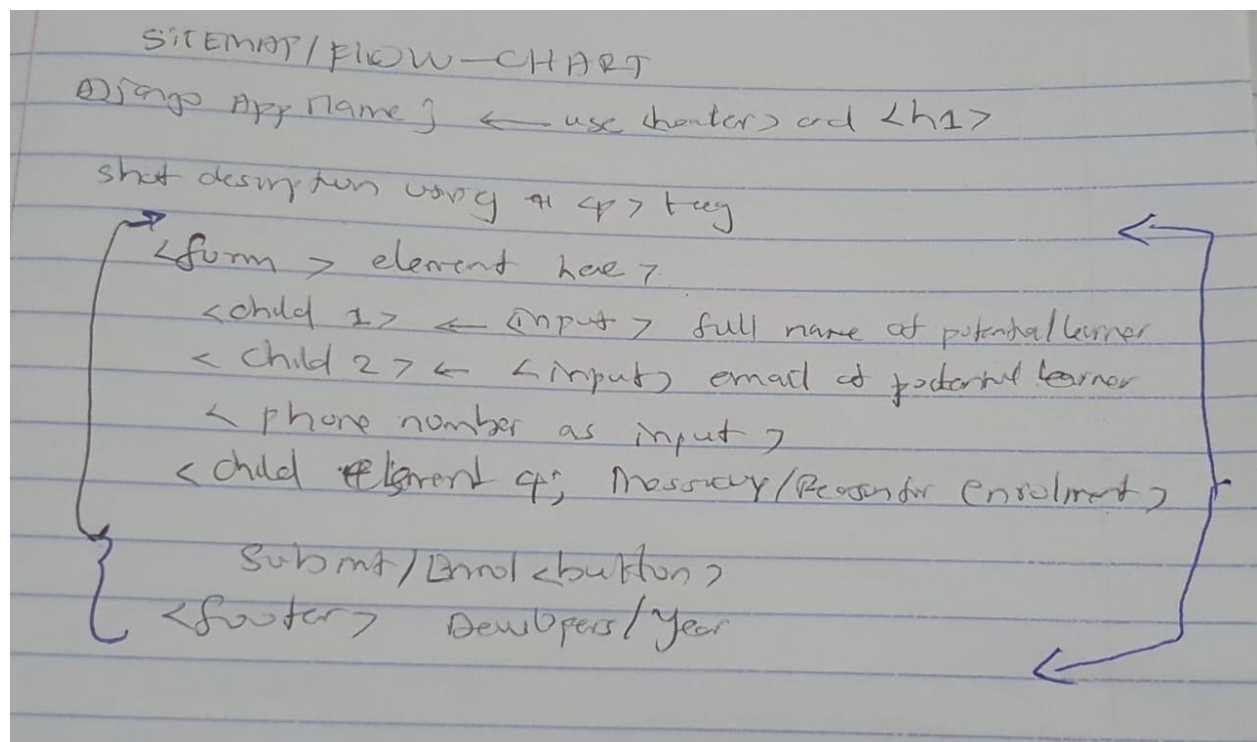 SITEMAP/FLOW-CHART
Django App Name } ← use <header> and <h1>
short description using <p> tag
<form> element here >
<child 1> ← <input> full name of potential learner
<child 2> ← <input> email of potential learner
<phone number as input>
<child element 4; Message/Reason for enrolment>
Submit/Enrol <button>
<footer> Developers/Year